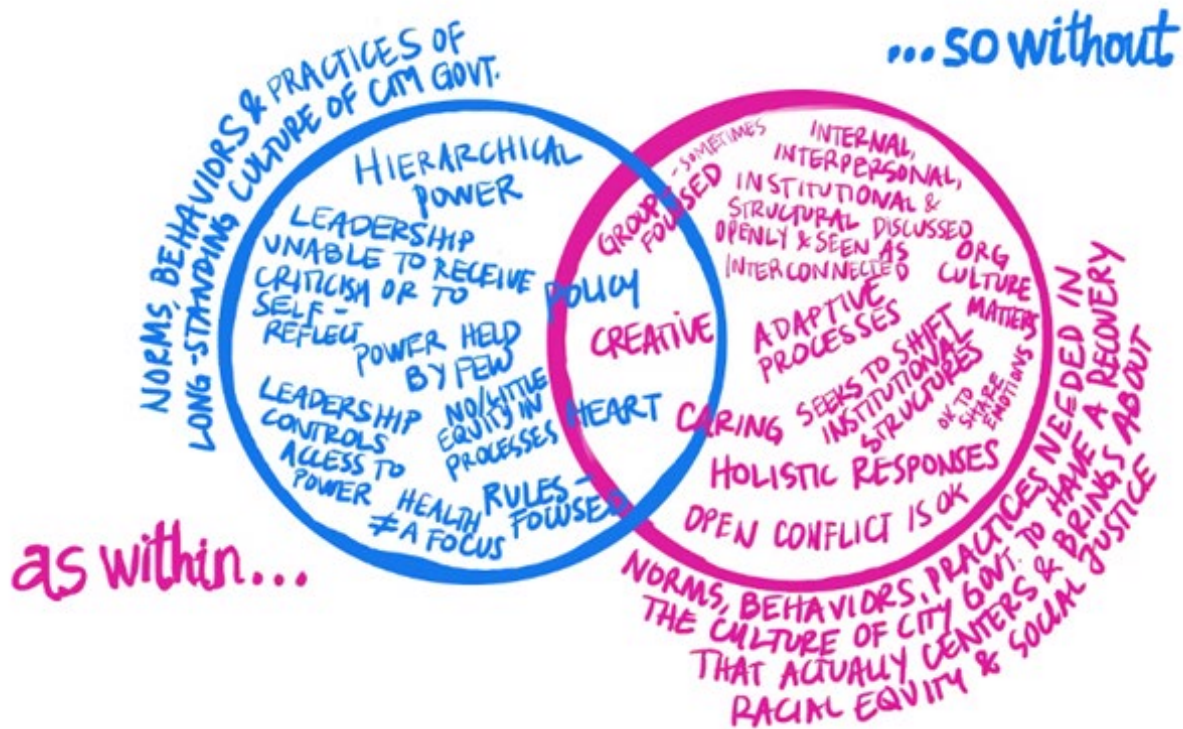 ...so without
NORMS, BEHAVIORS & PRACTICES OF
LONG-STANDING CULTURE OF CITY GOVT.
HIERARCHICAL
POWER
LEADERSHIP
UNABLE TO RECEIVE
CRITICISM OR TO
SELF-
REFLECT
POWER HELD
BY FEW
NO/LITTLE
EQUITY IN
PROCESSES
LEADERSHIP
CONTROLS
ACCESS TO
POWER
HEALTH
≠ A FOCUS
RULES-
FOUSED
GROUP - SOMETIMES
FOCUSED
POLICY
CREATIVE
HEART
CARING
INTERNAL,
INTERPERSONAL,
INSTITUTIONAL &
STRUCTURAL DISCUSSED
OPENLY & SEEN AS
INTERCONNECTED
ORG
CULTURE
MATTERS
ADAPTIVE
PROCESSES
SEEKS TO SHIFT
INSTITUTIONAL
STRUCTURES
OK TO
SHARE
EMOTIONS
HOLISTIC RESPONSES
OPEN CONFLICT IS OK
as within...
NORMS, BEHAVIORS, PRACTICES NEEDED IN
THE CULTURE OF CITY GOVT. TO HAVE A RECOVERY
THAT ACTUALLY CENTERS & BRINGS ABOUT
RACIAL EQUITY & SOCIAL JUSTICE